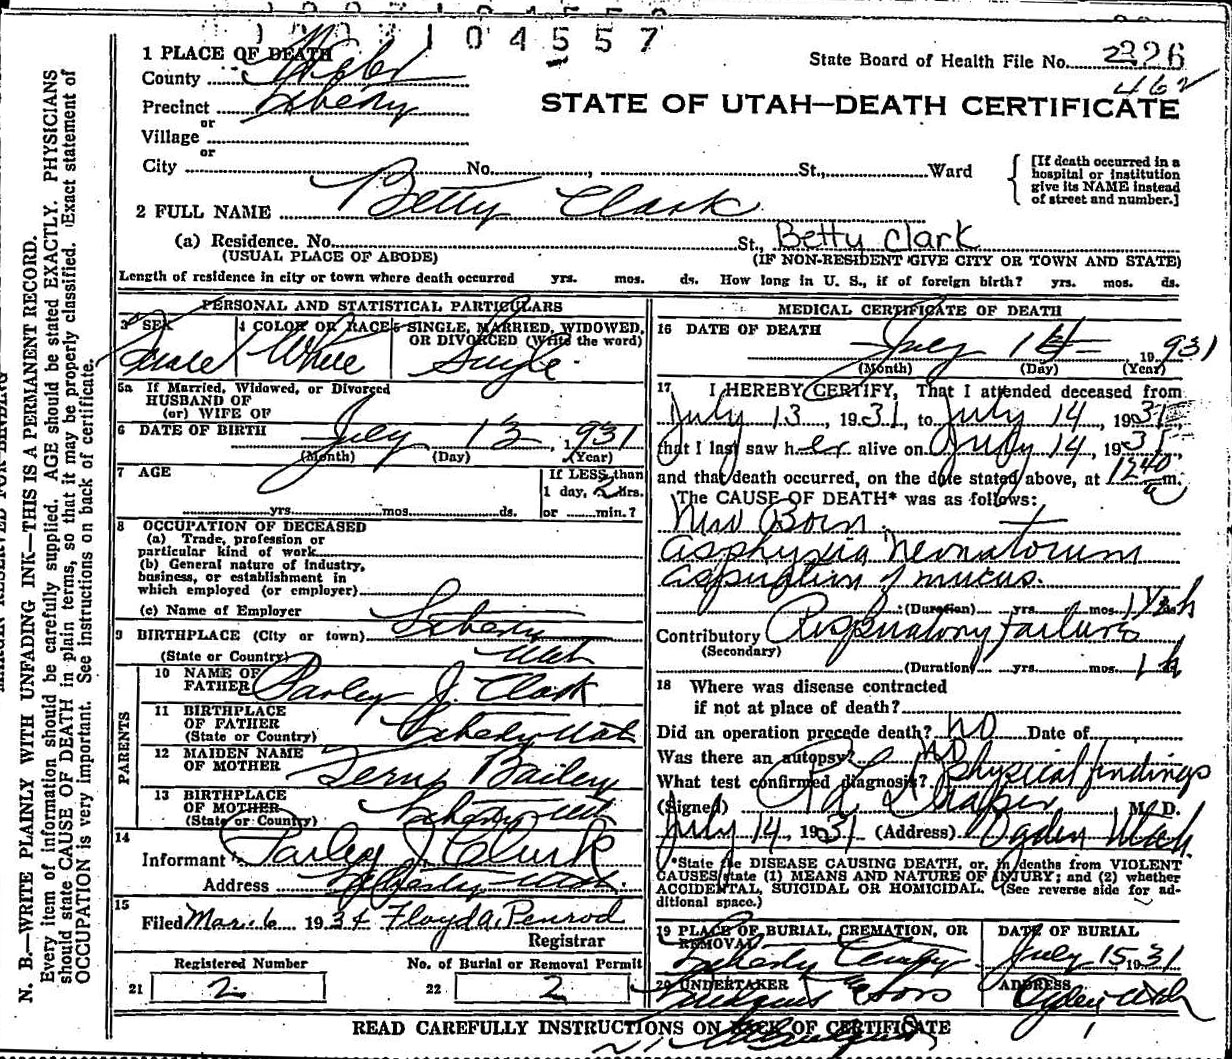 104557
State Board of Health File No. 2226
462
1 PLACE OF DEATH
County Weber
STATE OF UTAH—DEATH CERTIFICATE
Precinct Liberty
or
Village
or
City No. , St., Ward
[If death occurred in a
hospital or institution
give its NAME instead
of street and number.]
2 FULL NAME Betty Clark
(a) Residence. No. St., Betty Clark
(USUAL PLACE OF ABODE) (IF NON-RESIDENT GIVE CITY OR TOWN AND STATE)
Length of residence in city or town where death occurred yrs. mos. ds. How long in U. S., if of foreign birth? yrs. mos. ds.
PERSONAL AND STATISTICAL PARTICULARS
3 SEX 4 COLOR OR RACE 5 SINGLE, MARRIED, WIDOWED,
OR DIVORCED (Write the word)
White Single
5a If Married, Widowed, or Divorced
HUSBAND OF
(or) WIFE OF
6 DATE OF BIRTH July 13, 1931
(Month) (Day) (Year)
7 AGE If LESS than
1 day, 2 hrs.
yrs. mos. ds. or min.?
8 OCCUPATION OF DECEASED
(a) Trade, profession or
particular kind of work
(b) General nature of industry,
business, or establishment in
which employed (or employer)
(c) Name of Employer
9 BIRTHPLACE (City or town) Liberty
(State or Country) Utah
PARENTS
10 NAME OF
FATHER Parley J. Clark
11 BIRTHPLACE
OF FATHER
(State or Country) Liberty Utah
12 MAIDEN NAME
OF MOTHER Bailey
13 BIRTHPLACE
OF MOTHER
(State or Country) Liberty Utah
14
Informant Parley J. Clark
Address Liberty Utah
15
Filed Mar. 6 1934 Floyd A. Penrod
Registrar
Registered Number No. of Burial or Removal Permit
21 2 22 2
MEDICAL CERTIFICATE OF DEATH
16 DATE OF DEATH
July 1931
(Month) (Day) (Year)
17 I HEREBY CERTIFY, That I attended deceased from
July 13, 1931, to July 14, 1931,
that I last saw her alive on July 14, 1931,
and that death occurred, on the date stated above, at 1240 a m.
The CAUSE OF DEATH* was as follows:
New Born
asphyxia Neonatorum
aspiration of mucus.
(Duration) yrs. mos.
Contributory Respiratory failure
(Secondary)
(Duration) yrs. mos. 1 h
18 Where was disease contracted
if not at place of death?
Did an operation precede death? No Date of
Was there an autopsy? No
What test confirmed diagnosis? Physical findings
(Signed) M. D.
July 14, 1931 (Address) Ogden Utah
*State the DISEASE CAUSING DEATH, or, in deaths from VIOLENT
CAUSES state (1) MEANS AND NATURE OF INJURY; and (2) whether
ACCIDENTAL, SUICIDAL OR HOMICIDAL. (See reverse side for ad-
ditional space.)
19 PLACE OF BURIAL, CREMATION, OR
REMOVAL DATE OF BURIAL
Liberty July 15 1931
20 UNDERTAKER ADDRESS
& Sons Ogden Utah
READ CAREFULLY INSTRUCTIONS ON BACK OF CERTIFICATE
N. B.—WRITE PLAINLY WITH UNFADING INK—THIS IS A PERMANENT RECORD.
Every item of information should be carefully supplied. AGE should be stated EXACTLY. PHYSICIANS
should state CAUSE OF DEATH in plain terms, so that it may be properly classified. Exact statement of
OCCUPATION is very important. See instructions on back of certificate.